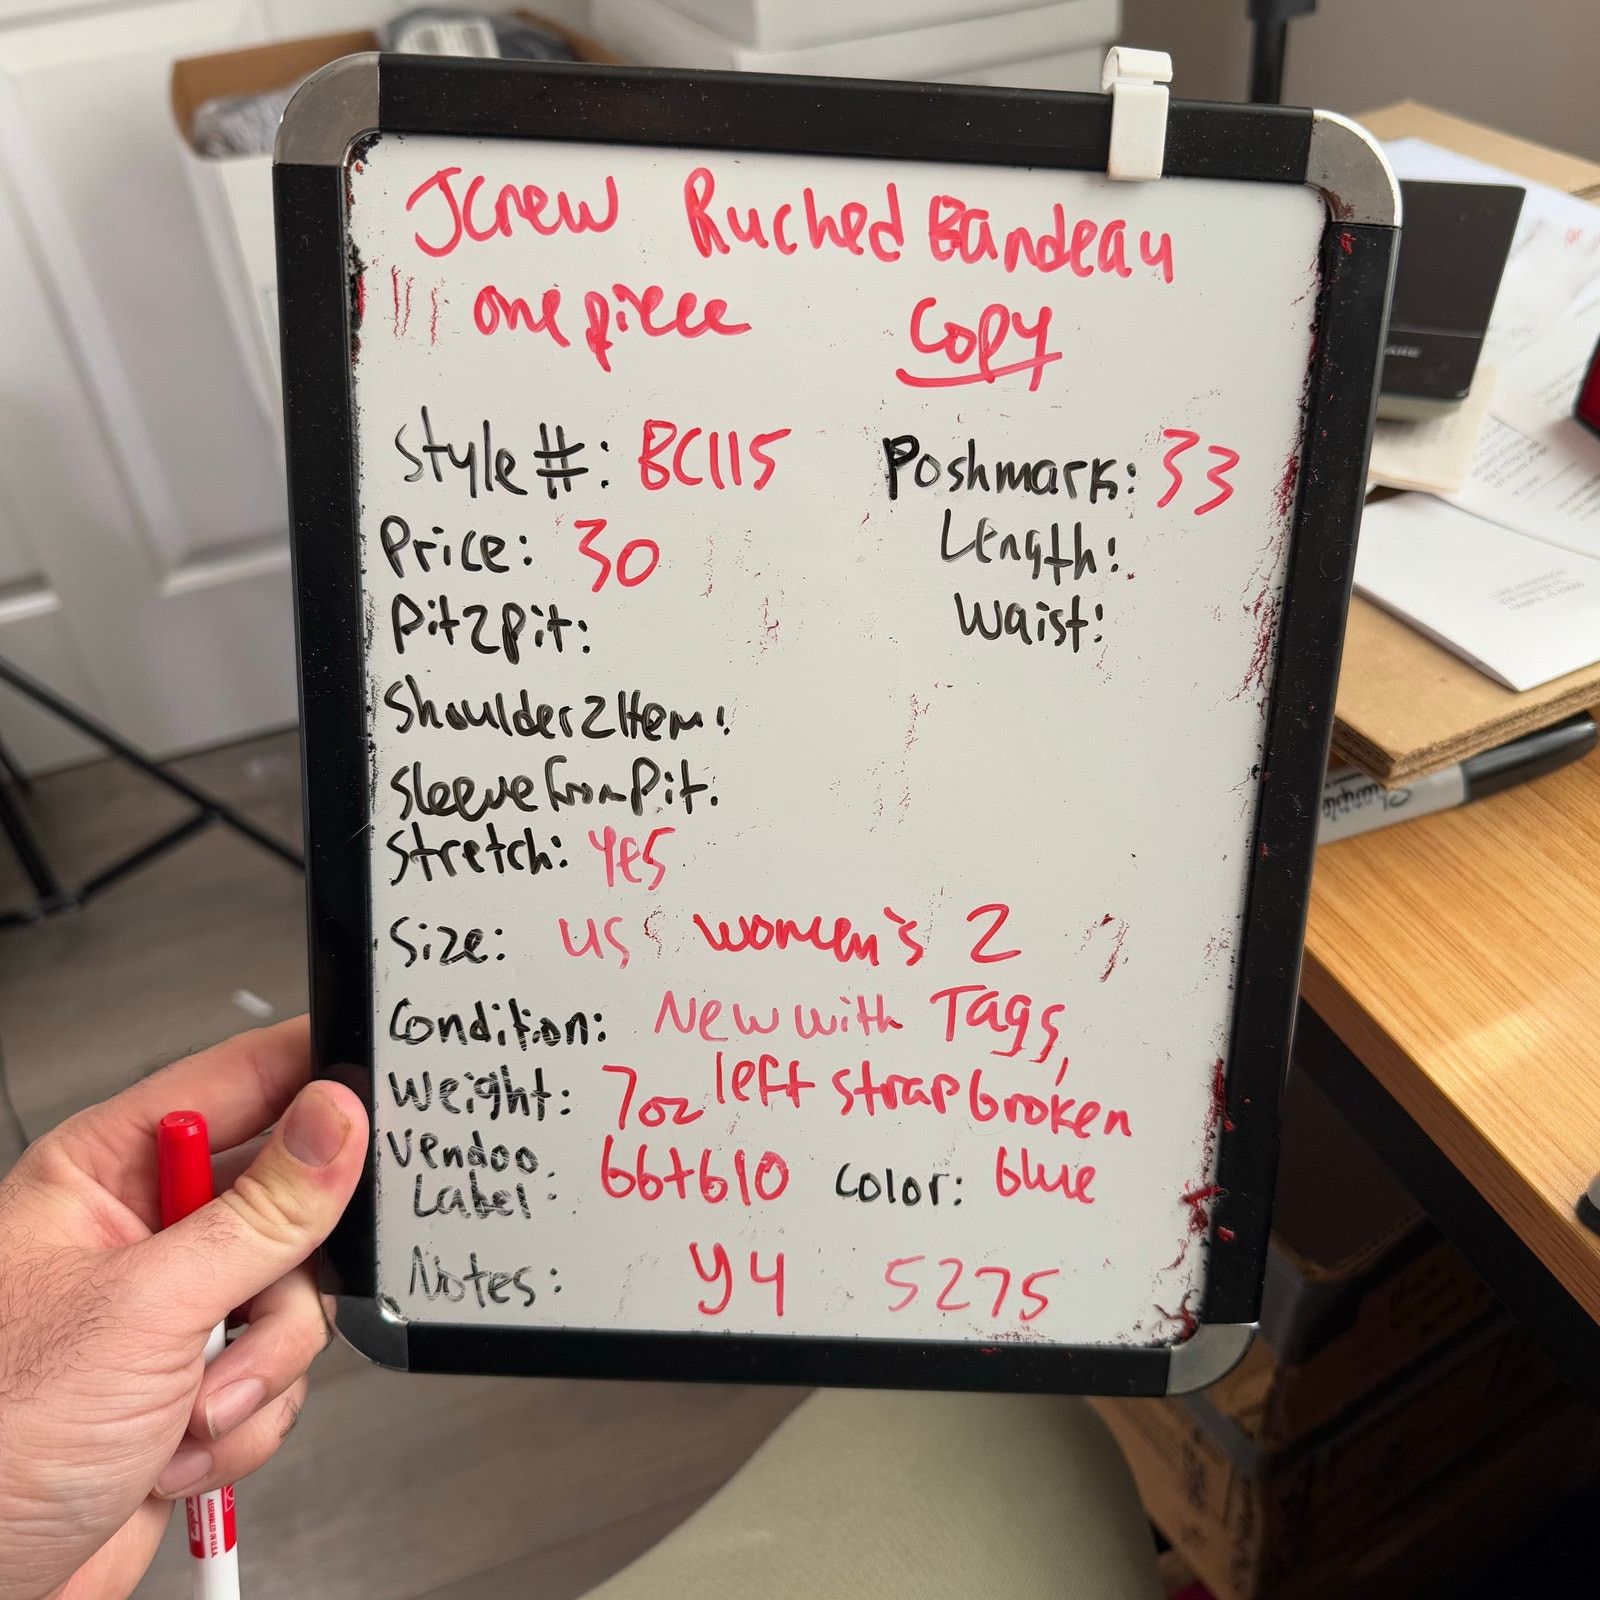 JCrew Ruched Bandeau
one piece Copy
Style #: BC115 Poshmark: 33
Price: 30 Length:
Pit2Pit: Waist:
Shoulder2Hem:
Sleeve From Pit:
Stretch: Yes
Size: US women's 2
Condition: New with Tags,
left strap broken
Weight: 7oz
Vendoo Label: 66+610 Color: blue
Notes: y4 5275
ASSEMBLED IN U.S.A.
Sharpie